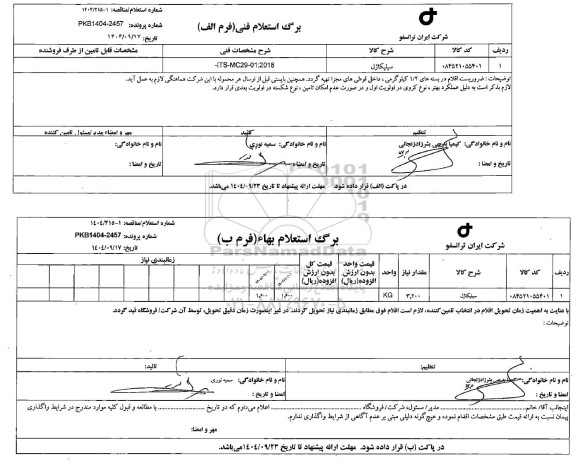 شماره استعلام/مناقصه: ۱-۱۴۰۴/۳۱۵
برگ استعلام فنی(فرم الف)
شماره پرونده: PKB1404-2457
تاریخ: ۱۴۰۴/۰۹/۱۷
شرکت ایران ترانسفو
ردیف کد کالا شرح کالا شرح مشخصات فنی مشخصات قابل تامین از طرف فروشنده
۱ ۰۸۴۵۲۱۰۵۵۴۰۱ سیلیکاژل ITS-MC29-01:2018-
توضیحات : ضروریست اقلام در بسته های ۱/۲ کیلوگرمی ، داخل قوطی های مجزا تهیه گردد. همچنین بایستی قبل از ارسال هر محموله با این شرکت هماهنگی لازم به عمل آید.
لازم بذکر است به دلیل عملکرد بهتر ، نوع کروی در اولویت اول و در صورت عدم امکان تامین ، نوع شکسته در اولویت بعدی قرار دارد.
تنظیم تائید مهر و امضاء مدیر/مسئول تامین کننده
نام و نام خانوادگی: نام و نام خانوادگی: سمیه نوری نام و نام خانوادگی:
تاریخ و امضا : تاریخ و امضا : تاریخ و امضا :
در پاکت (الف) قرار داده شود. مهلت ارائه پیشنهاد تا تاریخ ۱۴۰۴/۰۹/۲۳ می‌باشد.
شماره استعلام/مناقصه: ۱-۱۴۰۴/۳۱۵
برگ استعلام بهاء(فرم ب)
شماره پرونده: PKB1404-2457
تاریخ: ۱۴۰۴/۰۹/۱۷
شرکت ایران ترانسفو
ردیف کد کالا شرح کالا مقدار نیاز واحد قیمت واحد بدون ارزش افزوده(ریال) قیمت کل بدون ارزش افزوده(ریال) زمانبندی نیاز
۱ ۰۸۴۵۲۱۰۵۵۴۰۱ سیلیکاژل ۳,۲۰۰ KG ۱,۶۰۰ ۱,۶۰۰
با عنایت به اهمیت زمان تحویل اقلام در انتخاب تامین‌کننده، لازم است اقلام فوق مطابق زمانبندی نیاز تحویل گردند. در غیر اینصورت زمان دقیق تحویل، توسط آن شرکت/ فروشگاه قید گردد.
توضیحات :
تنظیم: تائید:
نام و نام خانوادگی: نام و نام خانوادگی: سمیه نوری
امضا و تاریخ : امضا و تاریخ :
اینجانب آقا/ خانم مدیر/ مسئول شرکت/ فروشگاه اعلام می‌دارم که در تاریخ با مطالعه و قبول کلیه موارد مندرج در شرایط واگذاری
پیمان نسبت به ارائه قیمت طبق مشخصات اقدام نموده و هیچ‌گونه دلیلی مبنی بر عدم آگاهی از شرایط واگذاری ندارم.
مهر و امضا:
در پاکت (ب) قرار داده شود. مهلت ارائه پیشنهاد تا تاریخ ۱۴۰۴/۰۹/۲۳ می‌باشد.
ParsNamadData